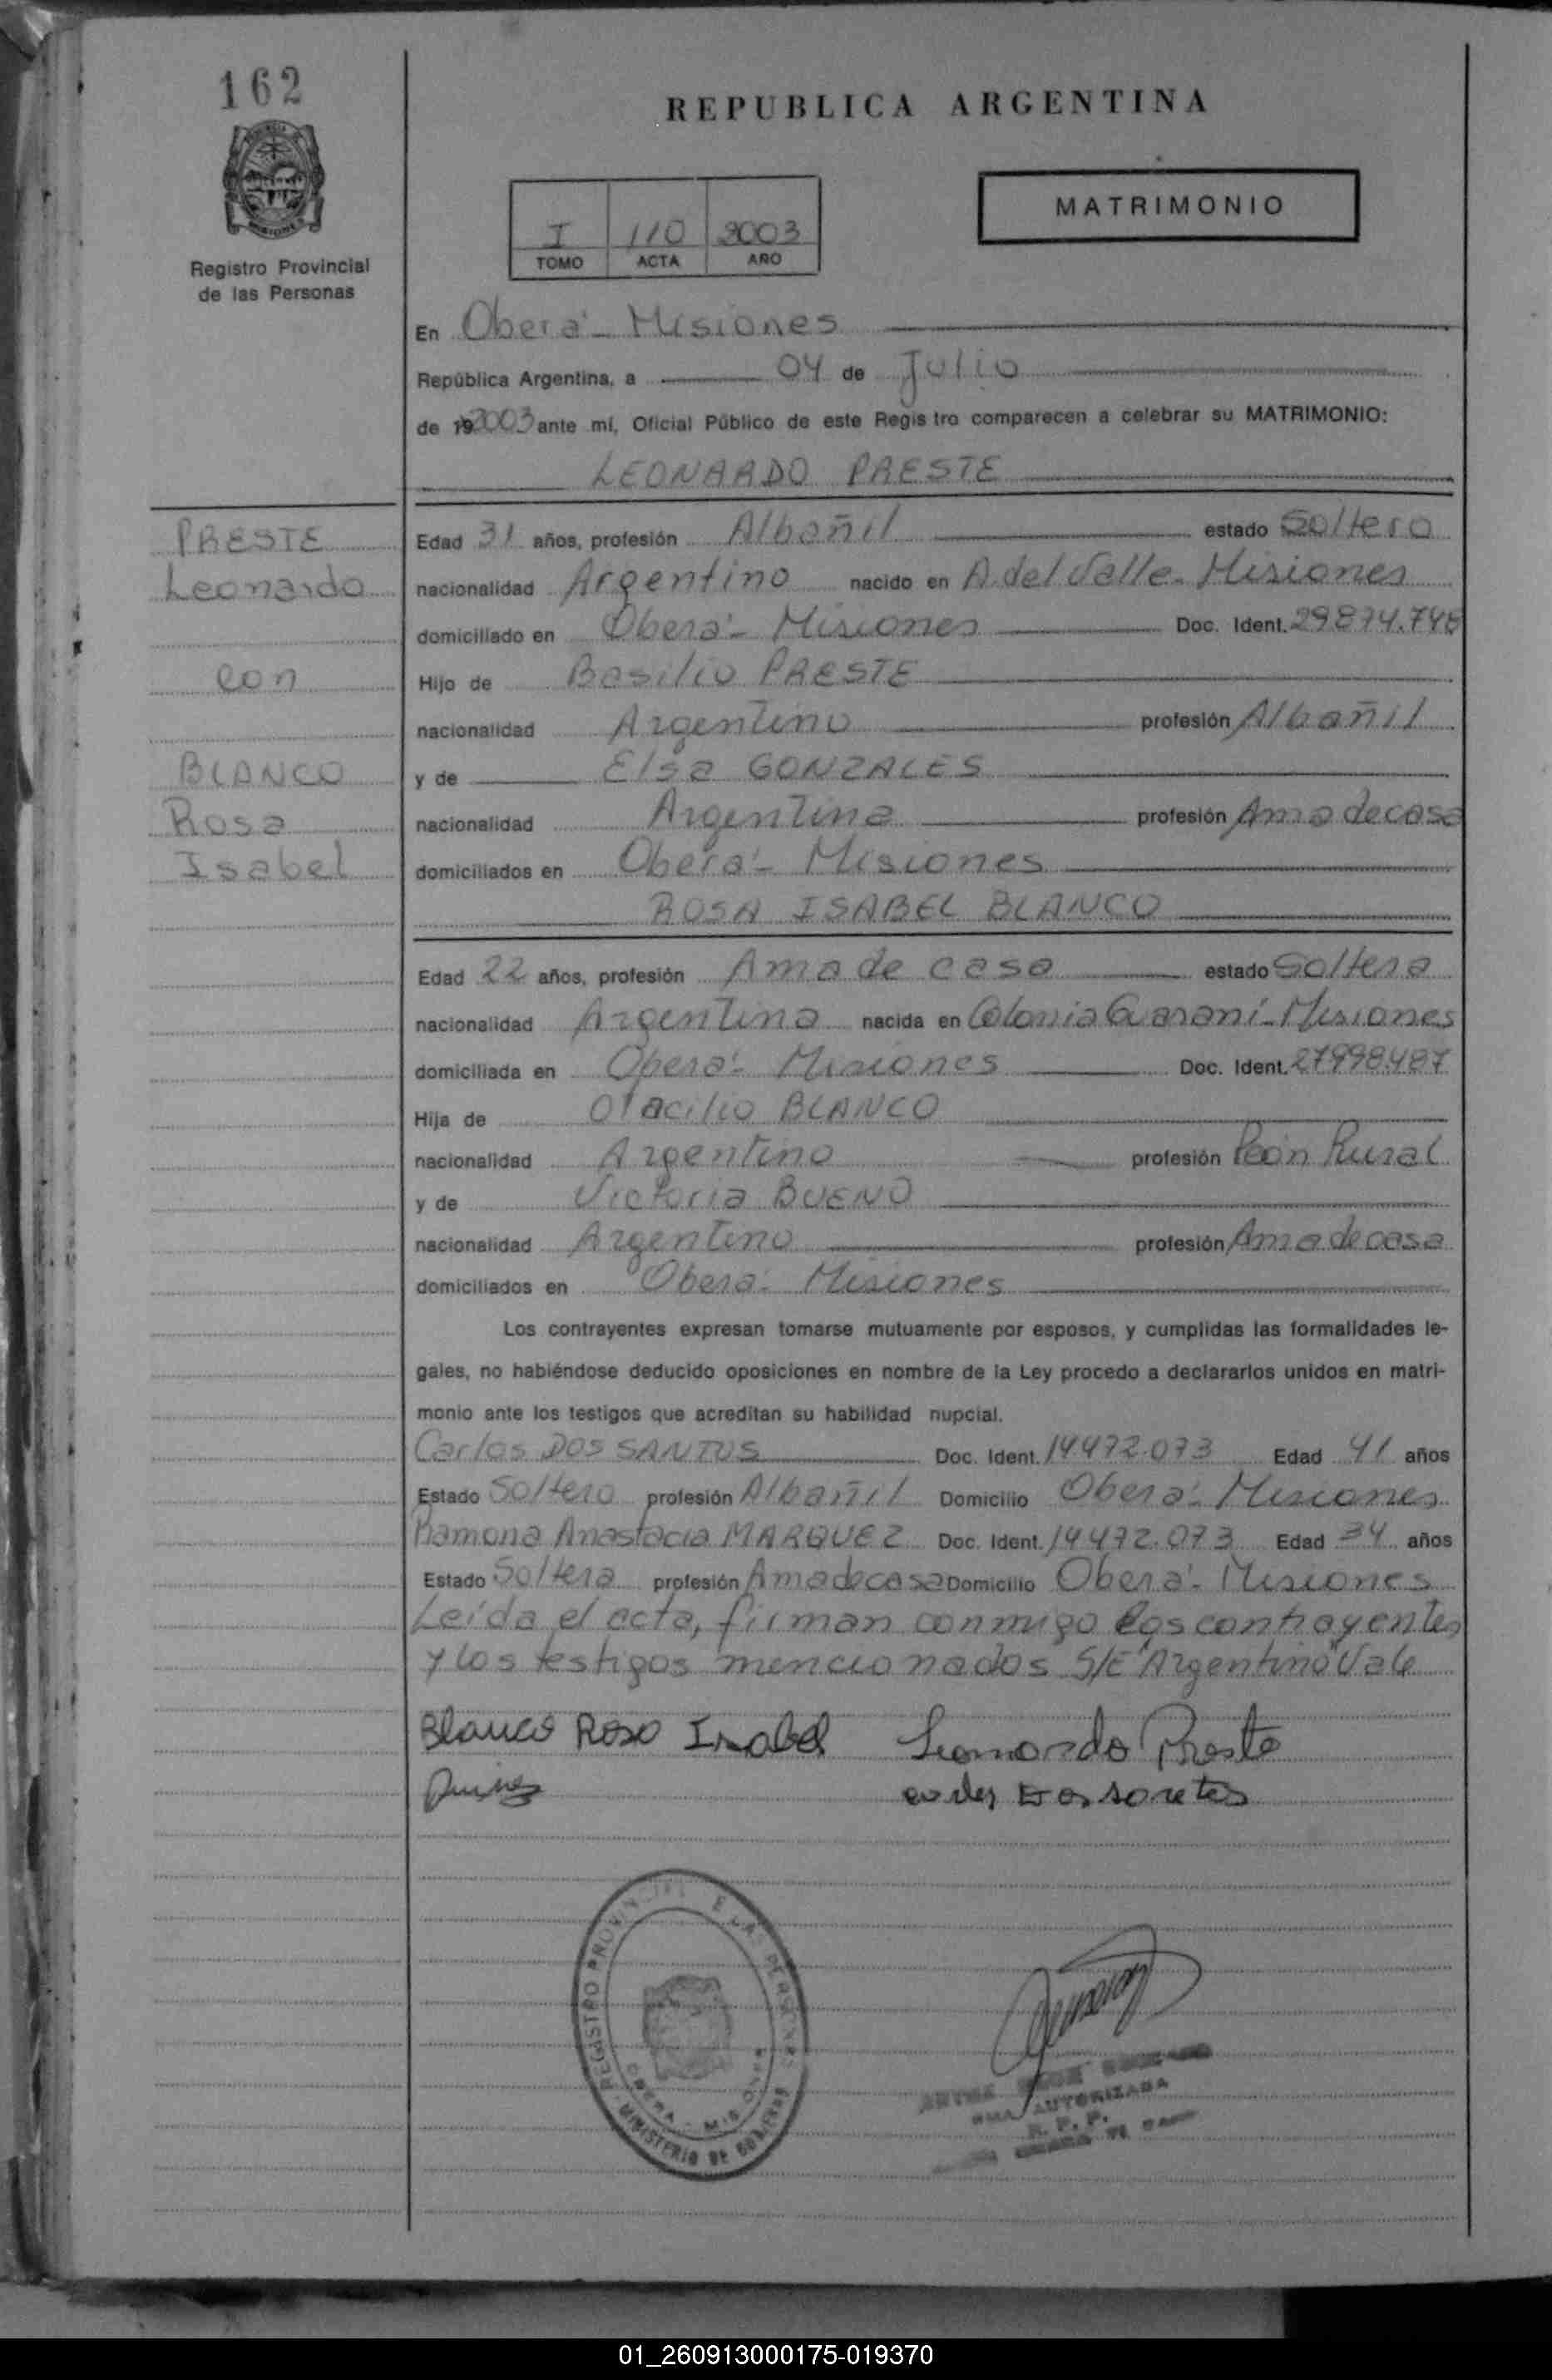 162
REPUBLICA ARGENTINA
MATRIMONIO
I 110 2003
TOMO ACTA AÑO
Registro Provincial
de las Personas
En Oberá - Misiones
República Argentina, a 04 de Julio
de 192003 ante mí, Oficial Público de este Registro comparecen a celebrar su MATRIMONIO:
LEONARDO PRESTE
PRESTE
Leonardo
con
BLANCO
Rosa
Isabel
Edad 31 años, profesión Albañil estado Soltero
nacionalidad Argentino nacido en A. del Valle - Misiones
domiciliado en Oberá - Misiones Doc. Ident. 29874.748
Hijo de Basilio PRESTE
nacionalidad Argentino profesión Albañil
y de Elsa GONZALES
nacionalidad Argentina profesión Ama de casa
domiciliados en Oberá - Misiones
ROSA ISABEL BLANCO
Edad 22 años, profesión Ama de casa estado Soltera
nacionalidad Argentina nacida en Colonia Guaraní - Misiones
domiciliada en Oberá - Misiones Doc. Ident. 27998.487
Hija de Otacilio BLANCO
nacionalidad Argentino profesión Peón Rural
y de Victoria BUENO
nacionalidad Argentino profesión Ama de casa
domiciliados en Oberá - Misiones
Los contrayentes expresan tomarse mutuamente por esposos, y cumplidas las formalidades le-
gales, no habiéndose deducido oposiciones en nombre de la Ley procedo a declararlos unidos en matri-
monio ante los testigos que acreditan su habilidad nupcial.
Carlos DOS SANTOS Doc. Ident. 14.472.073 Edad 41 años
Estado Soltero profesión Albañil Domicilio Oberá - Misiones
Ramona Anastacia MARQUEZ Doc. Ident. 14472.073 Edad 34 años
Estado Soltera profesión Ama de casa Domicilio Oberá - Misiones
Leída el acta, firman conmigo los contrayentes
y los testigos mencionados S/E "Argentino" Vale
Blanco Rosa Isabel Leonardo Preste
REGISTRO PROVINCIAL DE LAS PERSONAS
OBERA - MISIONES
MINISTERIO DE GOBIERNO
AUTORIZADA
R. P. P.
01_260913000175-019370